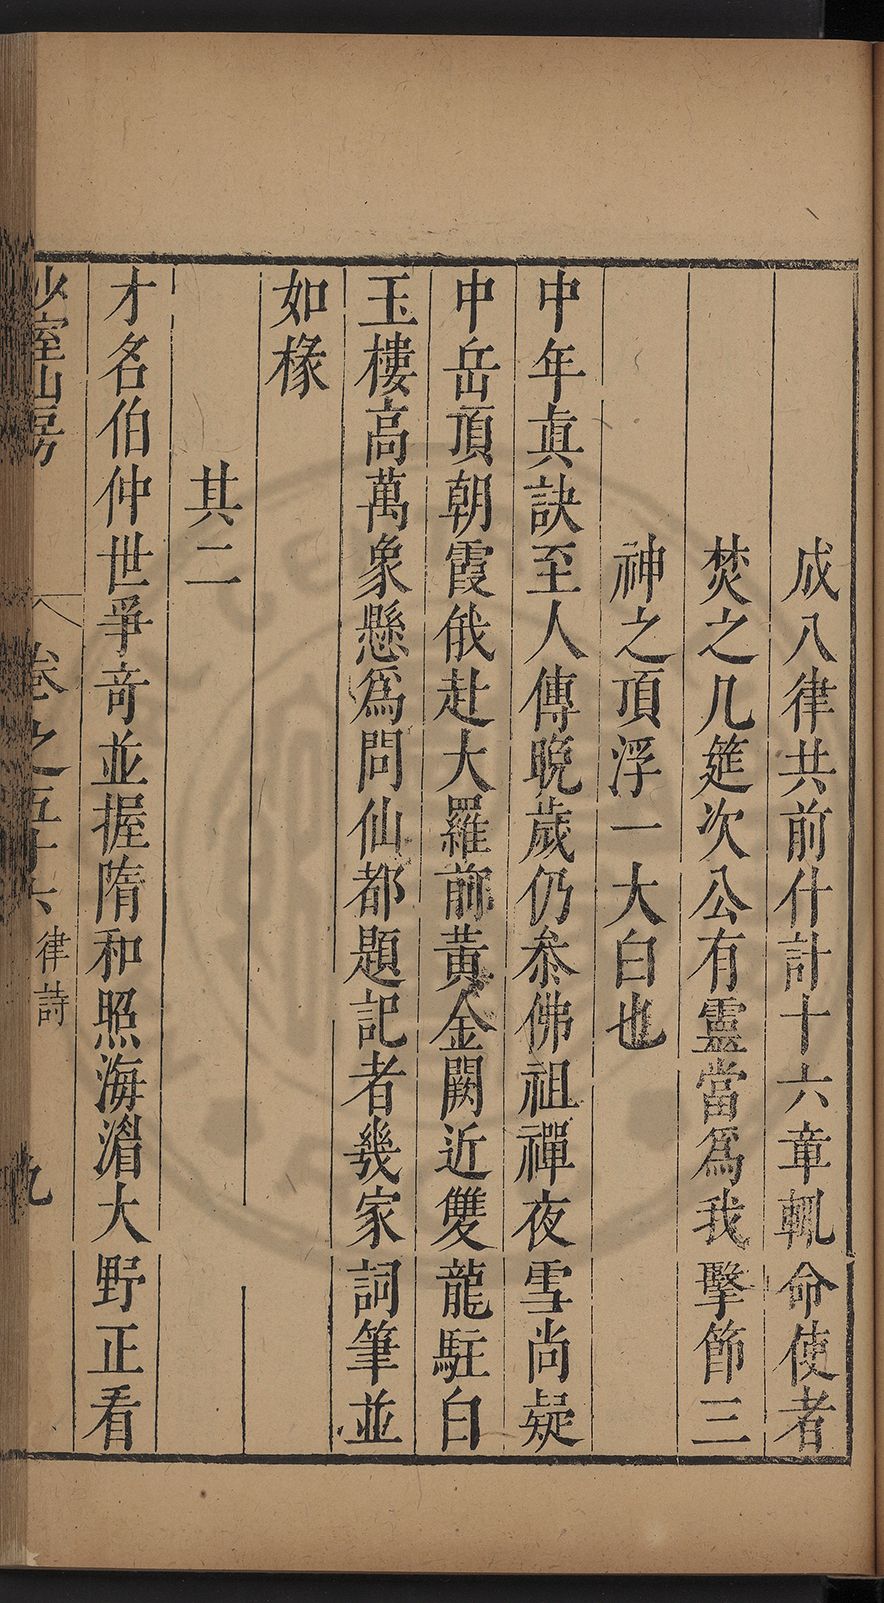 成八律共前什計十六章輒命使者
焚之几筵次公有靈當爲我擊節三
神之頂浮一大白也
中年真訣至人傳晚歲仍叅佛祖禪夜雪尚疑
中岳頂朝霞俄赴大羅前黃金闕近雙龍駐白
玉樓高萬象懸爲問仙都題記者幾家詞筆並
如椽
其二
才名伯仲世爭竒並握隋和照海湄大野正看
少室山房
卷之五十六 律詩
九